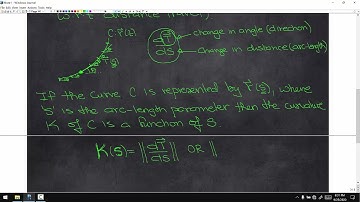 w.r.t distance
C: r⃗(s)
dT⃗
ds
change in angle (direction)
change in distance (arc length)
If the curve C is represented by r⃗(s), where
's' is the arc-length parameter then the curvature
K of C is a function of s.
K(s) = ||dT⃗/ds|| OR ||